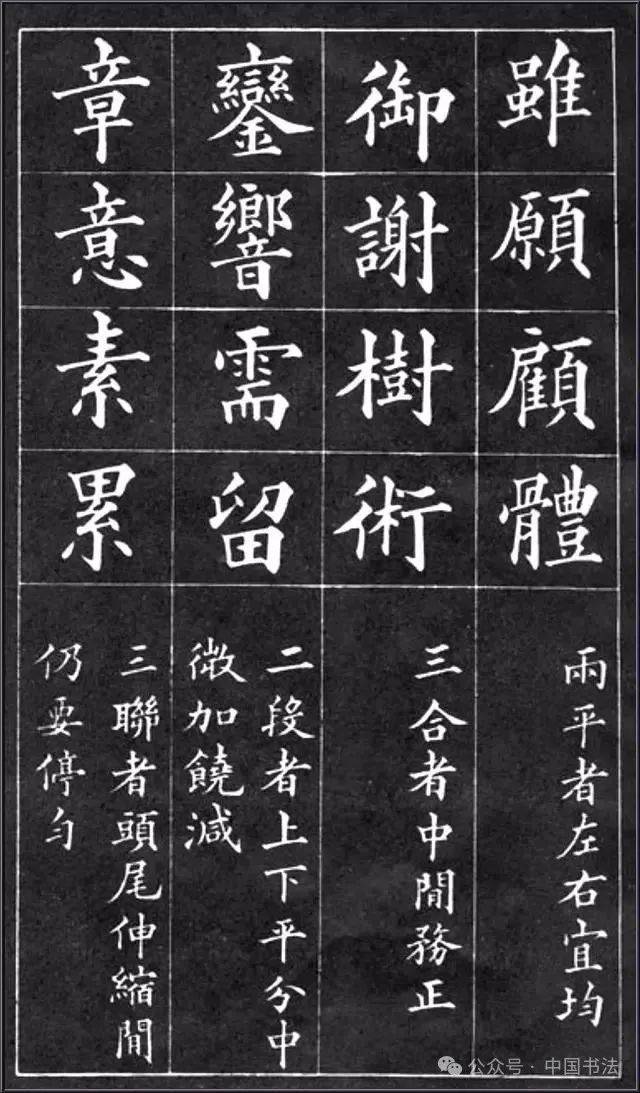 雖願顧體
兩平者左右宜均
御謝樹術
三合者中間務正
鑾響需留
二段者上下平分中
微加饒減
章意素累
三聯者頭尾伸縮間
仍要停勻
公众号·中国书法